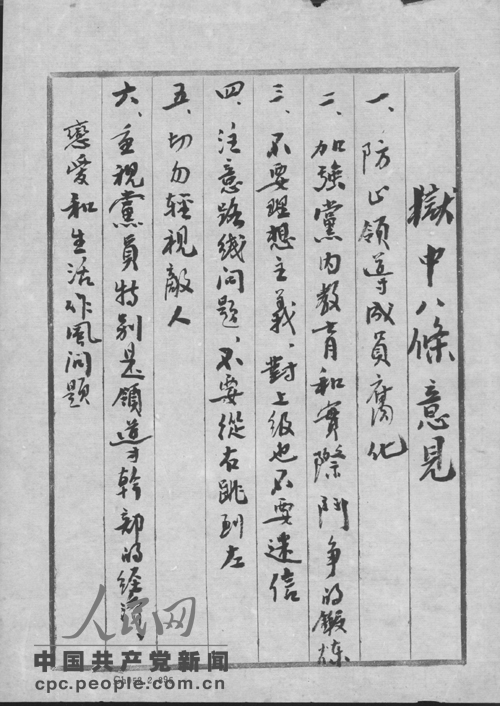 獄中八條意見
一、防止領導成員腐化
二、加強黨内教育和實際鬥争的鍛炼
三、不要理想主義,對上級也不要迷信
四、注意路线问題、不要從右跳到左
五、切勿輕視敵人
六、重視黨員特别是領導幹部的經濟
戀愛和生活作風问題
人民网
中国共产党新闻
cpc.people.com.cn